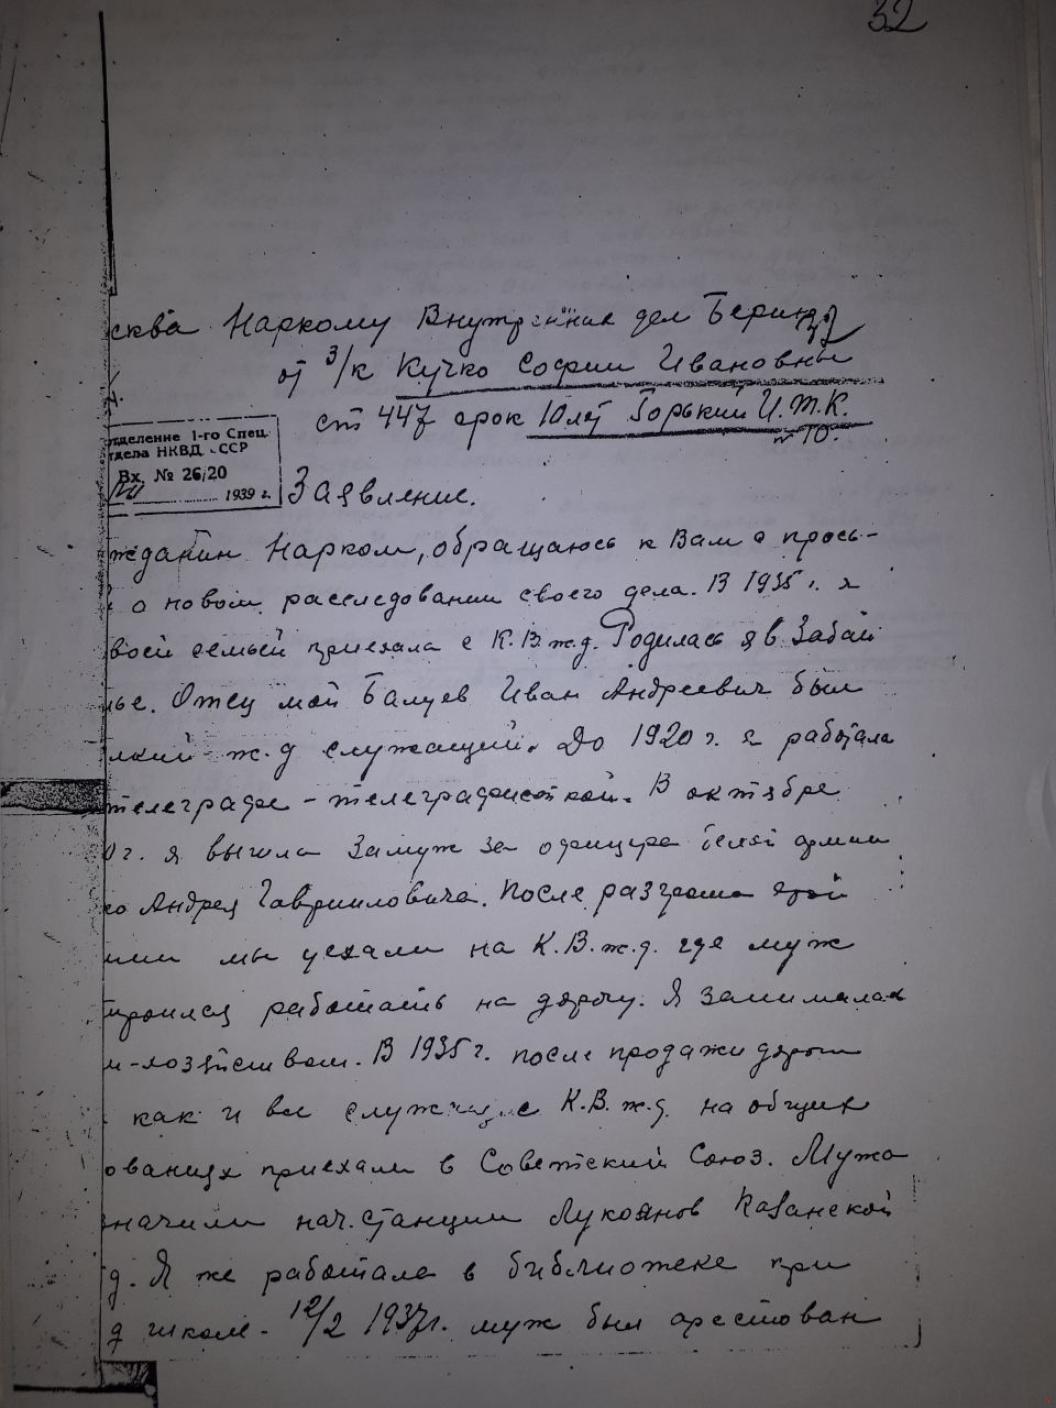 32
сква Наркому Внутренних дел Берия
от з/к Кучко Софии Ивановны
ст 447 срок 10 лет Горький И.Т.К.
№ 10.
тделение 1-го Спец.
тдела НКВД СССР
Вх. № 26/20
1939 г.
Заявление.
жданин Нарком, обращаюсь к Вам с прось-
о новом расследовании своего дела. В 1935 г. я
воей семьей приехала с К.В.ж.д. Родилась я в Забай
лье. Отец мой Балуев Иван Андреевич был
лкий ж.д служащий. До 1920 г. я работала
телеграфе - телеграфисткой. В октябре
0 г. я вышла замуж за офицера белой армии
ко Андрея Гаврииловича. После разгрома этой
мии мы уехали на К.В.ж.д. где муж
троился работать на дорогу. Я занималась
м-хозяйством. В 1935 г. после продажи дороги
как и все служащие К.В.ж.д. на общих
ованиях приехали в Советский Союз. Мужа
значили нач. станции Лукоянов Казанской
д. Я же работала в библиотеке при
д школе. 12/2 1937 г. муж был арестован